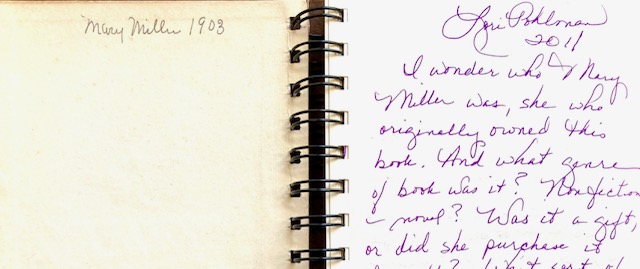 Mary Miller 1903
Lori Pohlman
2011
I wonder who Mary
Miller was, she who
originally owned this
book. And what genre
of book was it? Nonfiction
– novel? Was it a gift,
or did she purchase it
sort of